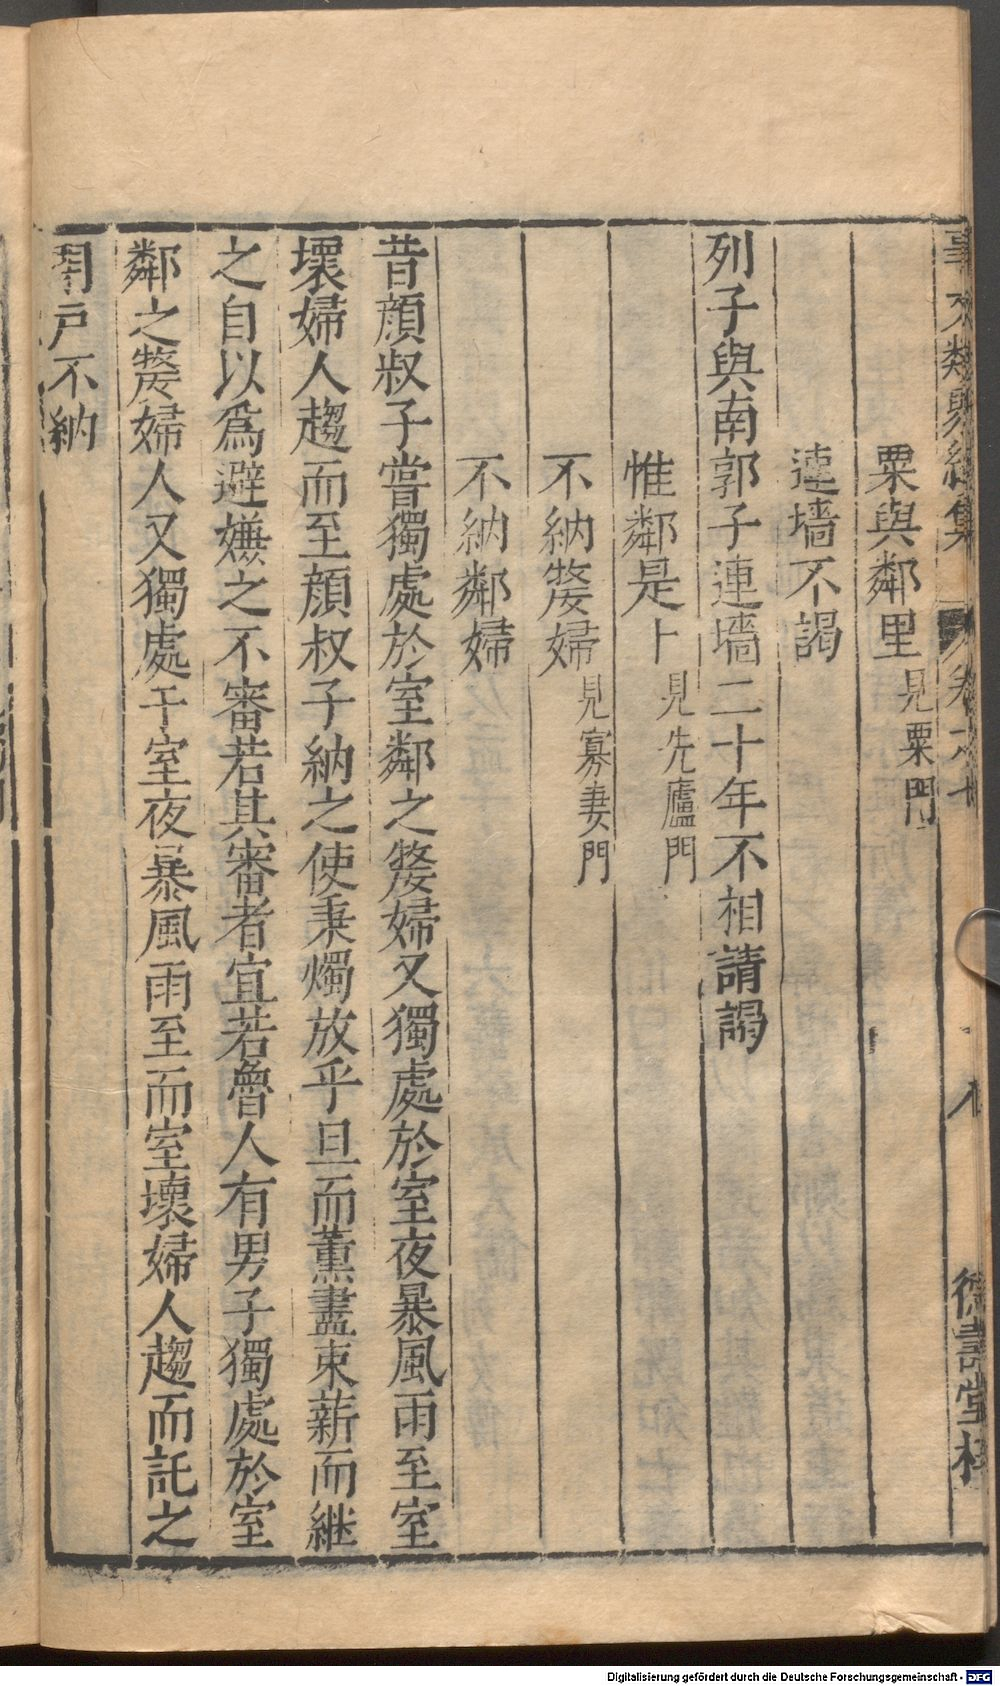 粟與鄰里見粟門
連墻不謁
列子與南郭子連墻二十年不相請謁
惟鄰是卜見先廬門
不納嫠婦見寡妻門
不納鄰婦
昔顔叔子嘗獨處於室鄰之嫠婦又獨處於室夜暴風雨至室
壞婦人趨而至顔叔子納之使秉燭放乎旦而薰盡束薪而継
之自以爲避嫌之不審若其審者宜若魯人有男子獨處於室
鄰之嫠婦人又獨處于室夜暴風雨至而室壞婦人趨而託之
閉戸不納
Digitalisierung gefördert durch die Deutsche Forschungsgemeinschaft - DFG